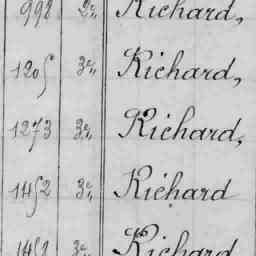 998 2º, Richard,
1205 3º, Richard,
1273 3º, Richard,
1452 3º, Richard
1452 3º, Richard